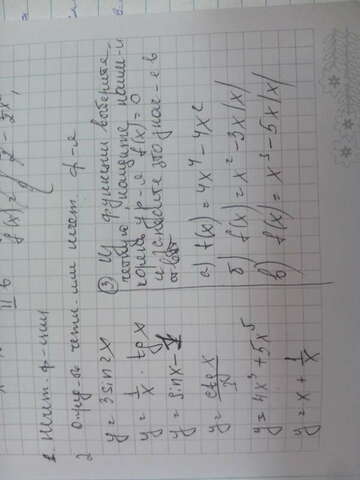 II в
f(x) =
2 - 2x
1. Нечет. ф-ции
2 Опред-ть четн. или нечет. ф-я
y = 3sin2x
y = 1/x · tg x
y = sinx -
y = ctg x /
y = 4x³ + 5x⁵
y = x + 1/x
③ Из функции выберите
четную, найдите наим-й
корень ур-я f(x) = 0
и запишите это знач-е в
ответ
а) f(x) = 4x⁴ - 4x²
б) f(x) = x² - 3x|x|
в) f(x) = x³ - 5x|x|